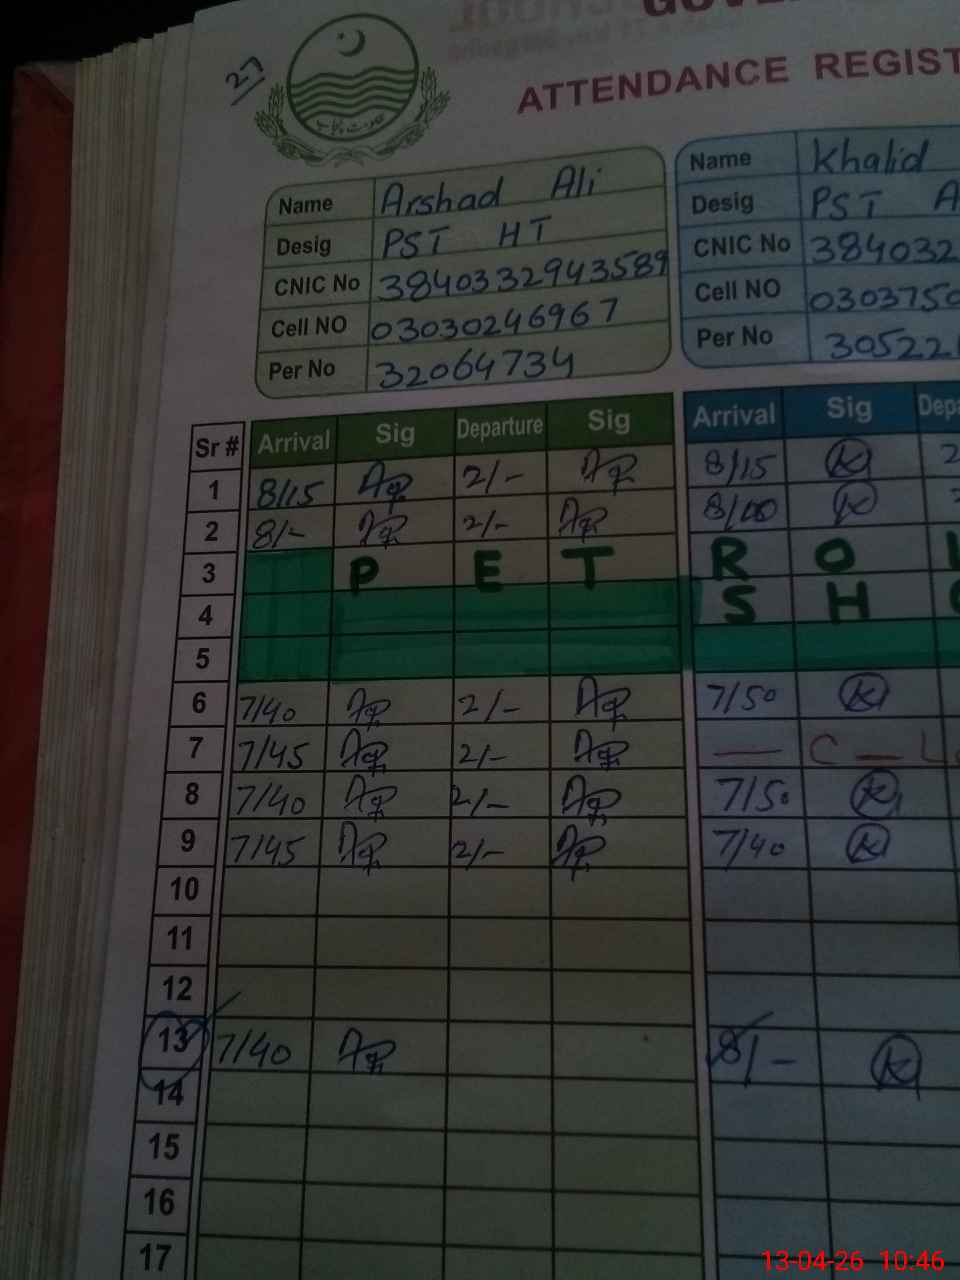 27
ATTENDANCE REGIST
Name Arshad Ali
Desig PST HT
CNIC No 3840332943589
Cell NO 03030246967
Per No 32064734
Name Khalid
Desig PST A
CNIC No 384032
Cell NO 0303750
Per No 30522
Sr # Arrival Sig Departure Sig Arrival Sig Depa
1 8/15 2/- 8/15 K 2
2 8/- 2/- 8/00 K
3 P E T R O L
4 S H
5
6 7/40 2/- 7/50 K
7 7/45 2/- — C — L
8 7/40 2/- 7/50 K
9 7/45 2/- 7/40 K
10
11
12
13 7/40 8/- K
14
15
16
17
13-04-26 10:46